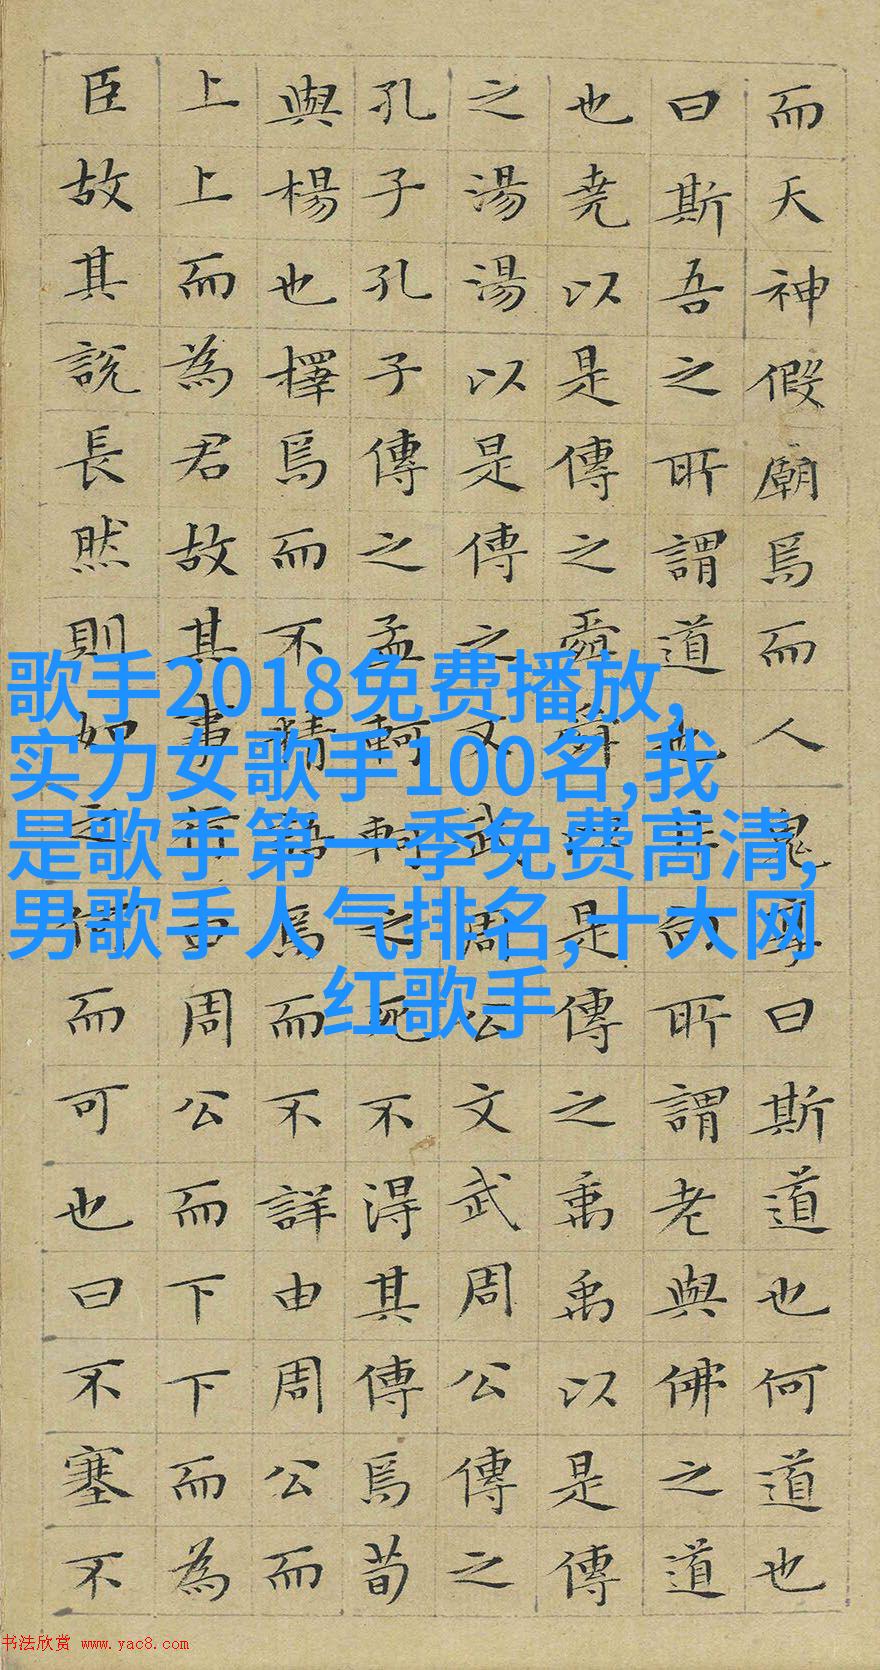 而天神假廟焉而人鬼享曰斯道也何道也
曰斯吾之所謂道也非向所謂老與佛之道
也堯以是傳之舜舜以是傳之禹禹以是傳
之湯湯以是傳之文武周公文武周公傳之
孔子孔子傳之孟軻軻之死不得其傳焉荀
與楊也擇焉而不精語焉而不詳由周公而
上上而為君故其事行由周公而下下而為
臣故其說長然則如之何而可也曰不塞不
歌手2018免费播放,
实力女歌手100名,我
是歌手第一季免费高清,
男歌手人气排名,十大网
红歌手
书法欣赏 www.yac8.com